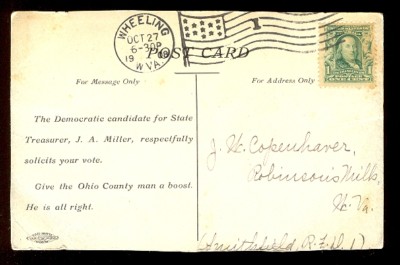 WHEELING
OCT 27
6-30P
19 08
W.VA.
1
POST CARD
For Message Only
For Address Only
ONE CENT
The Democratic candidate for State
Treasurer, J. A. Miller, respectfully
solicits your vote.
Give the Ohio County man a boost.
He is all right.
J. W. Copenhaver,
Robinson's Mills,
W. Va.
(Smithfield, R.F.D. 1)